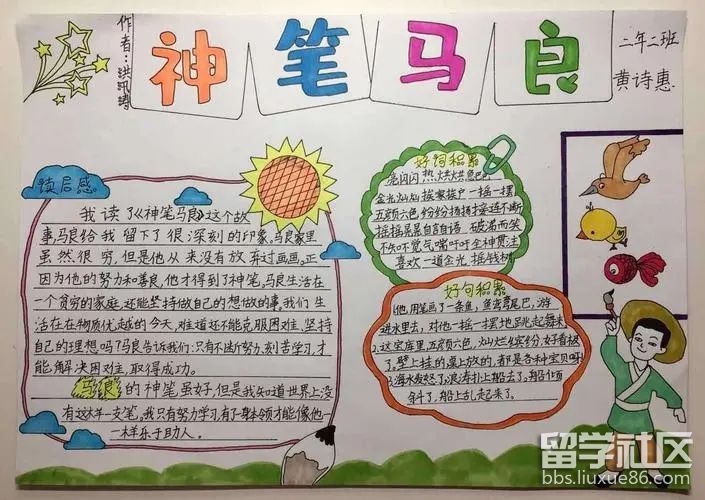 作者：洪汛涛
神笔马良
二年二班
黄诗惠
读后感
我读了《神笔马良》这个故
事，马良给我留下了很深刻的印象，马良家里
虽然很穷，但是他从来没有放弃过画画。正
因为他的努力和善良，他才得到了神笔。马良生活在
一个贫穷的家庭，还能坚持做自己的想做的事。我们生
活在在物质优越的今天，难道还不能克服困难，坚持
自己的理想吗？马良告诉我们：只有不断努力，刻苦学习，才
能解决困难，取得成功。
马良的神笔虽好，但是我知道世界上没
有这样一支笔。我只有努力学习，有了一身本领才能像他一
一样乐于助人。
好词积累
亮闪闪 热烘烘
金光灿灿 挨家挨户 一摇一摆
五颜六色 纷纷扬扬 接连不断
摇摇晃晃 自言自语 破涕而笑
不知不觉 气喘吁吁 全神贯注
喜欢 一道金光 摇钱树
好句积累
1.他用笔画了一条鱼，鱼弯弯尾巴，游
进水里去，对他一摇一摆地跳起舞来。
2.这宝库里五颜六色，灿烂缤纷，好看极
了。壁上挂的，桌上放的，都是各种宝贝呀！
3.海水发怒了，浪涛扑上船去了。船倾
斜了，船上乱起来了。
留学社区
bbs.liuxue86.com